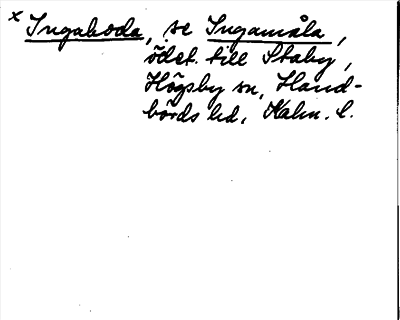 × Ingaboda, se Ingamåla,
ödet. till Staby,
Högsby sn, Hand-
börds hd, Kalm. l.